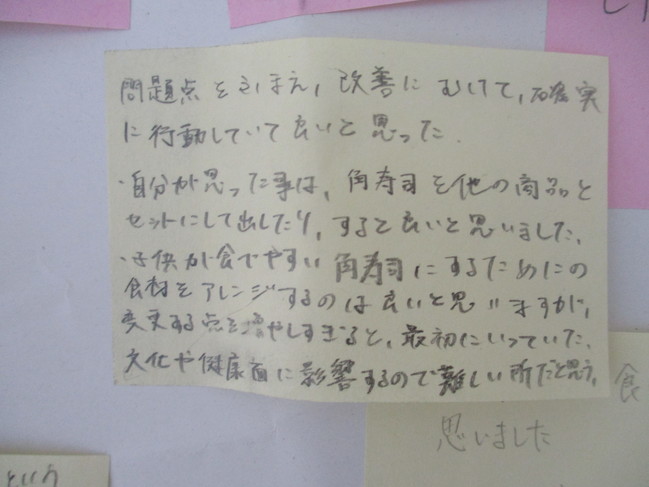 問題点をふまえ，改善にむけて，確実
に行動していて良いと思った．
・自分が思った事は，角寿司を他の商品と
セットにして出したり，すると良いと思いました．
・子供が食べやすい角寿司にするためにの
食材をアレンジするのは良いと思いますが，
変更する点を増やしすぎると，最初にいっていた，
文化や健康面に影響するので難しい所だと思う．
食
思いました
という